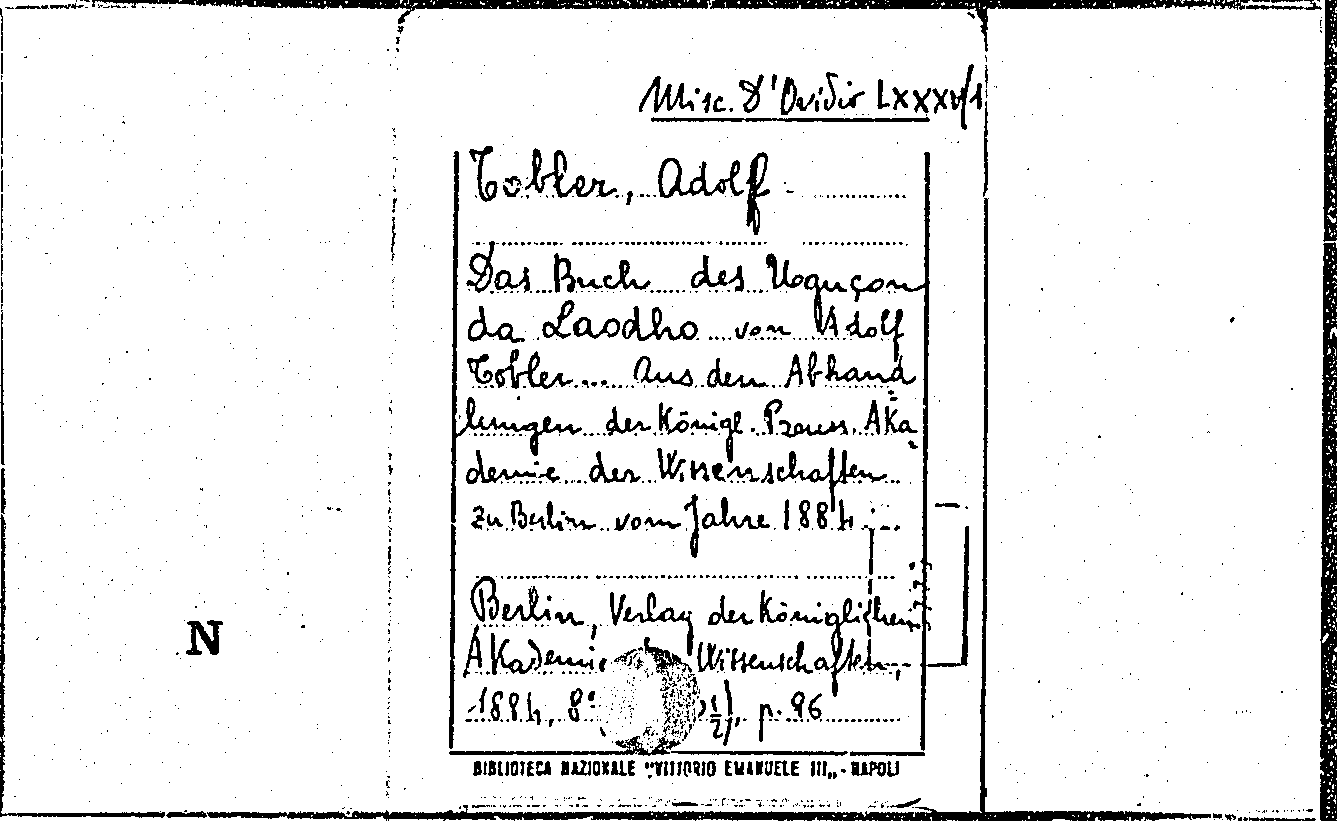 Misc. D'Ovidio LXXXV/1
Tobler, Adolf
Das Buch des Uguçon
da Laodho von Adolf
Tobler... Aus den Abhand
lungen der Königl. Preuss. Aka
demie der Wissenschaften
zu Berlin vom Jahre 1884...
Berlin, Verlag der Königlichen
Akademie Wissenschaften,
1884, 8° p. 96
N
BIBLIOTECA NAZIONALE "VITTORIO EMANUELE III„ - NAPOLI